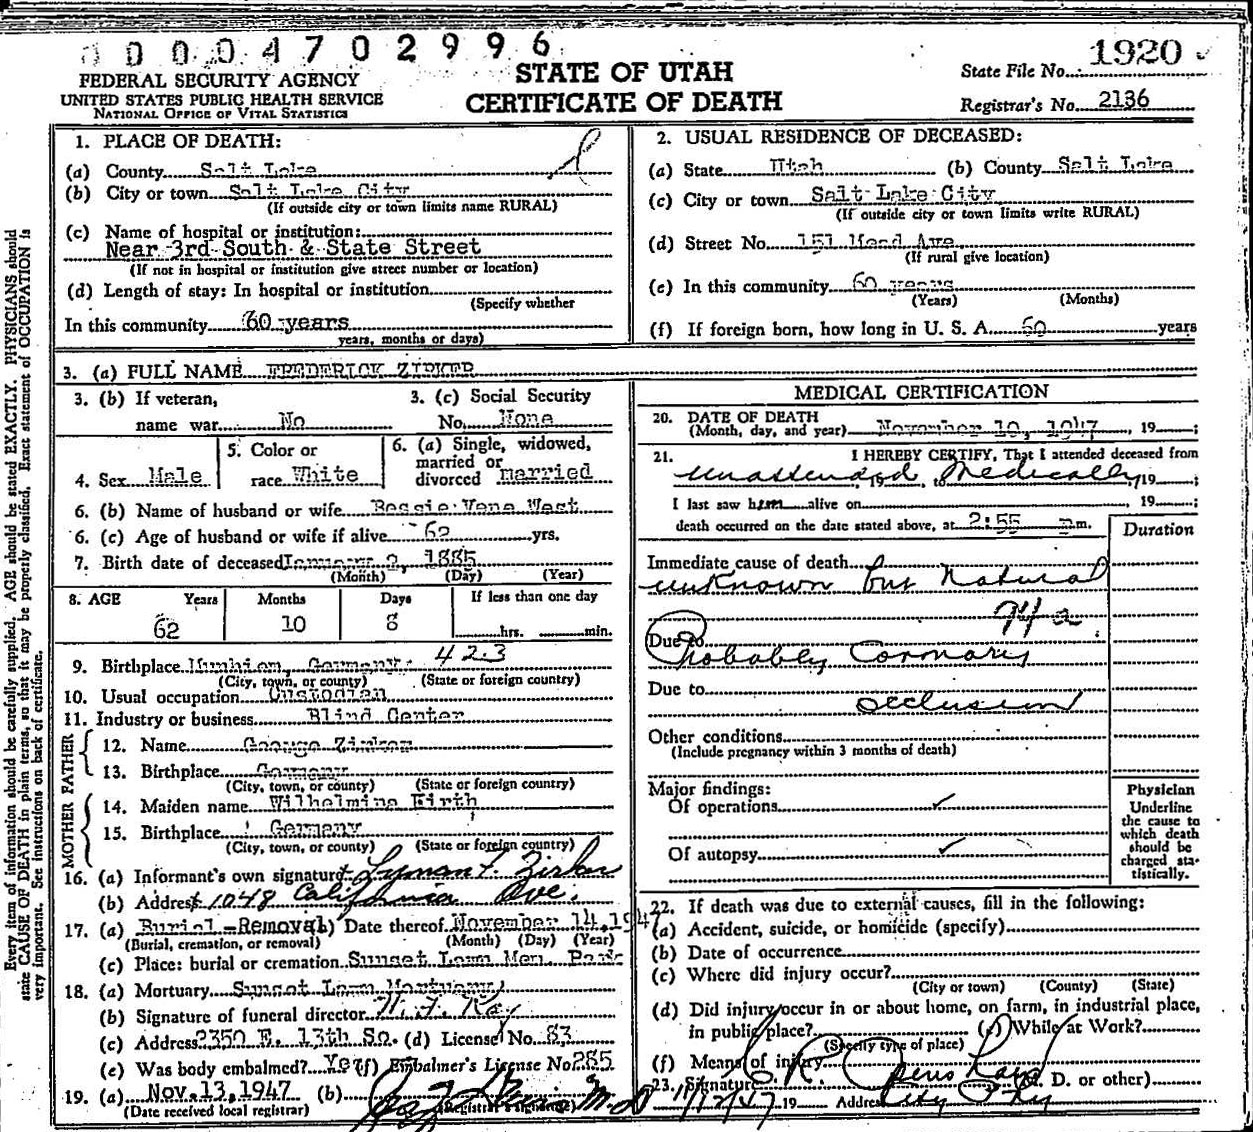 0 0 0 4 7 0 2 9 9 6
1920
FEDERAL SECURITY AGENCY
UNITED STATES PUBLIC HEALTH SERVICE
NATIONAL OFFICE OF VITAL STATISTICS
STATE OF UTAH
CERTIFICATE OF DEATH
State File No.
Registrar's No. 2136
1. PLACE OF DEATH:
(a) County Salt Lake
(b) City or town Salt Lake City
(If outside city or town limits name RURAL)
(c) Name of hospital or institution:
Near 3rd South & State Street
(If not in hospital or institution give street number or location)
(d) Length of stay: In hospital or institution
(Specify whether
In this community 60 years
years, months or days)
2. USUAL RESIDENCE OF DECEASED:
(a) State Utah (b) County Salt Lake
(c) City or town Salt Lake City
(If outside city or town limits write RURAL)
(d) Street No. 151 Mead Ave
(If rural give location)
(e) In this community 60 years
(Years) (Months)
(f) If foreign born, how long in U. S. A. 60 years
3. (a) FULL NAME FREDERICK ZIRKER
3. (b) If veteran,
name war No
3. (c) Social Security
No. None
4. Sex Male
5. Color or
race White
6. (a) Single, widowed,
married or
divorced married
6. (b) Name of husband or wife Bessie Vene West
6. (c) Age of husband or wife if alive 62 yrs.
7. Birth date of deceased January 2, 1885
(Month) (Day) (Year)
8. AGE Years Months Days If less than one day
62 10 8 hrs. min.
9. Birthplace Germany 423
(City, town, or county) (State or foreign country)
10. Usual occupation Custodian
11. Industry or business Blind Center
FATHER
12. Name George Zirker
13. Birthplace Germany
(City, town, or county) (State or foreign country)
MOTHER
14. Maiden name Wilhelmina Firth
15. Birthplace Germany
(City, town, or county) (State or foreign country)
16. (a) Informant's own signature Lyman F. Zirker
(b) Address 1048 California Ave.
17. (a) Burial-Removal) Date thereof November 14, 1947
(Burial, cremation, or removal) (Month) (Day) (Year)
(c) Place: burial or cremation Sunset Lawn Mem. Park
18. (a) Mortuary Sunset Lawn Mortuary
(b) Signature of funeral director
(c) Address 2350 E. 13th So. (d) License No. 83
(e) Was body embalmed? Yes (f) Embalmer's License No 285
19. (a) Nov. 13, 1947 (b) M.D
(Date received local registrar) (Registrar's signature)
MEDICAL CERTIFICATION
20. DATE OF DEATH
(Month, day, and year) November 10, 1947, 19 ;
21. I HEREBY CERTIFY, That I attended deceased from
unattended 19 , to Medically, 19 ;
I last saw him alive on , 19 ;
death occurred on the date stated above, at 2:55 p m.
Duration
Immediate cause of death
unknown but Natural
94 a
Due to
Probably Coronary
Due to
occlusion
Other conditions
(Include pregnancy within 3 months of death)
Major findings:
Of operations ✓
Of autopsy ✓
Physician
Underline
the cause to
which death
should be
charged sta-
tistically.
22. If death was due to external causes, fill in the following:
(a) Accident, suicide, or homicide (specify)
(b) Date of occurrence
(c) Where did injury occur?
(City or town) (County) (State)
(d) Did injury occur in or about home, on farm, in industrial place,
in public place? (e) While at Work?
(Specify type of place)
(f) Means of injury
23. Signature (M. D. or other)
11/12/47 19 Address City
Every item of information should be carefully supplied. AGE should be stated EXACTLY. PHYSICIANS should
state CAUSE OF DEATH in plain terms, so that it may be properly classified. Exact statement of OCCUPATION is
very important. See instructions on back of certificate.